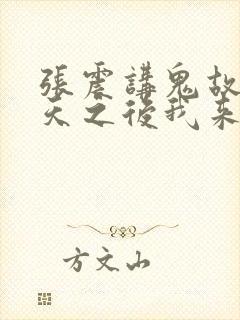 張震講鬼故
天之後我来
方文山